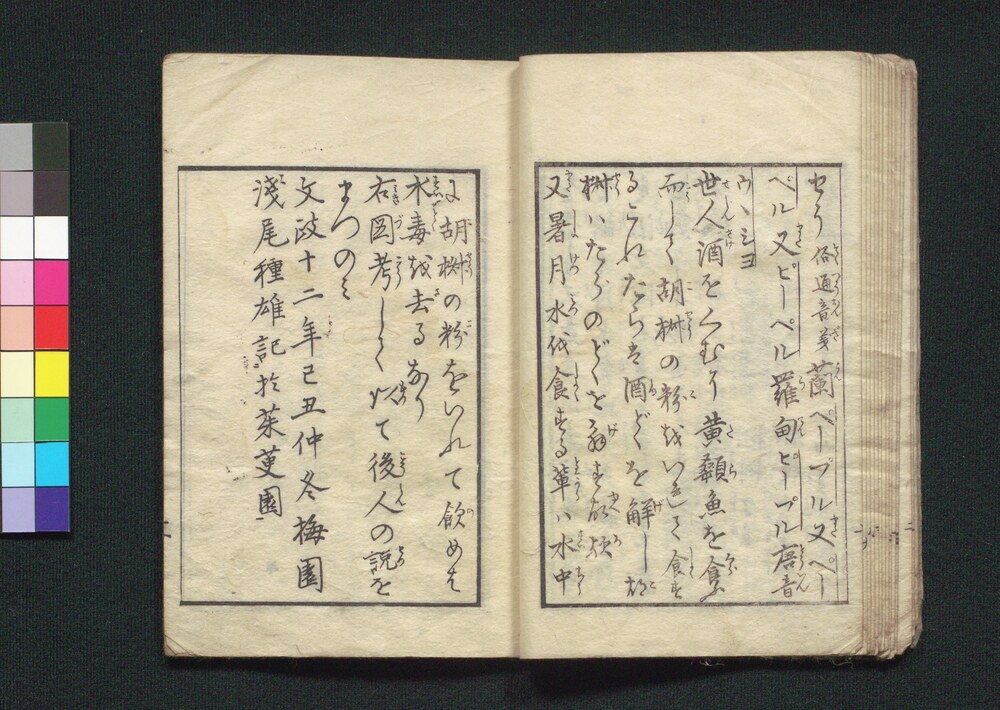 せり 俗通音義 蘭ペープル又ペー
ペル又ピーペル羅甸ピープル唐音
ウヽミヨ
世人酒をくむり黄顙魚を食ふ
而して胡椒の粉をいれて食す
るこれたらは酒どくを解し胡
椒ハたらのどくを
又暑月水を食する輩ハ水中
に胡椒の粉をいれて飲めは
水毒を去るあり
右図考しるして以て後人の説を
まつのミ
文政十二年己丑仲冬梅園
浅尾種雄記於茱萸園